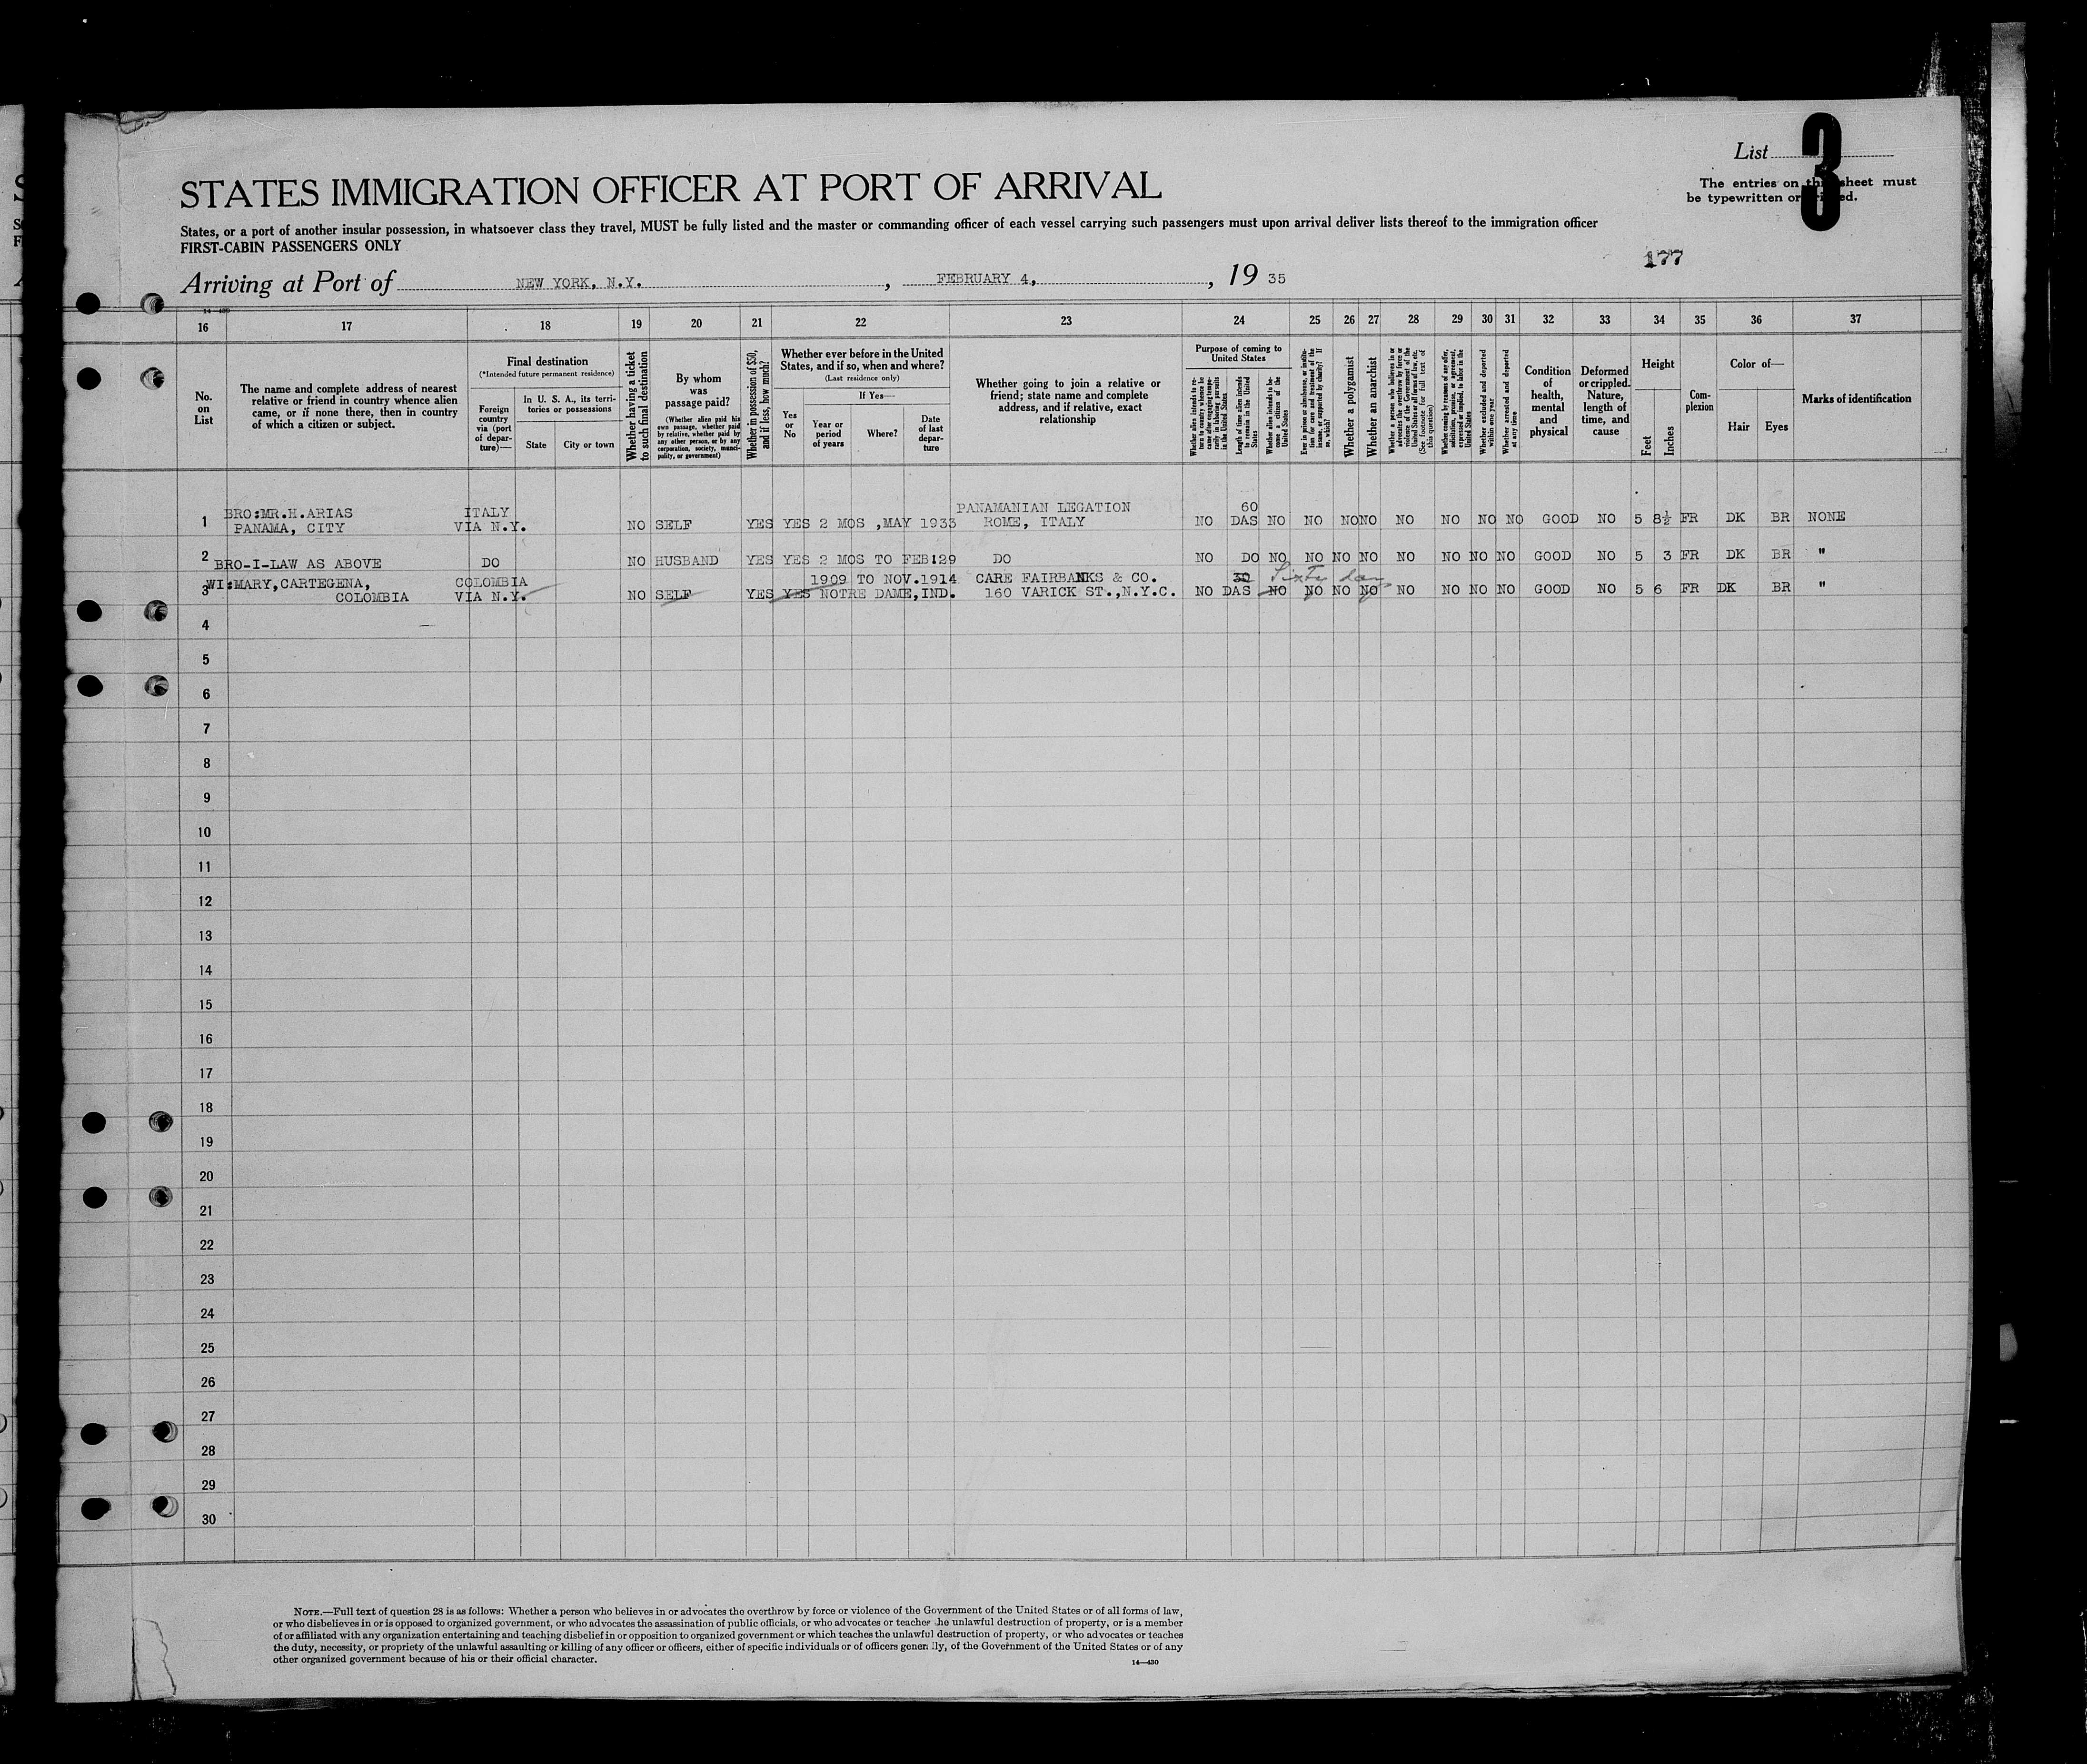 List
3
The entries on this sheet must
be typewritten or printed.
STATES IMMIGRATION OFFICER AT PORT OF ARRIVAL
States, or a port of another insular possession, in whatsoever class they travel, MUST be fully listed and the master or commanding officer of each vessel carrying such passengers must upon arrival deliver lists thereof to the immigration officer
FIRST-CABIN PASSENGERS ONLY
177
Arriving at Port of NEW YORK, N.Y. , FEBRUARY 4, , 19 35
16 17 18 19 20 21 22 23 24 25 26 27 28 29 30 31 32 33 34 35 36 37
No. on List
The name and complete address of nearest relative or friend in country whence alien came, or if none there, then in country of which a citizen or subject.
Final destination
(*Intended future permanent residence)
Foreign country via (port of departure)—
In U. S. A., its territories or possessions
State
City or town
Whether having a ticket to such final destination
By whom was passage paid?
(Whether alien paid his own passage, whether paid by relative, whether paid by any other person, or by any corporation, society, municipality, or government)
Whether in possession of $50, and if less, how much?
Whether ever before in the United States, and if so, when and where?
(Last residence only)
Yes or No
If Yes—
Year or period of years
Where?
Date of last departure
Whether going to join a relative or friend; state name and complete address, and if relative, exact relationship
Purpose of coming to United States
Length of time alien intends to remain in the United States
Whether alien intends to become a citizen of the United States
Whether a polygamist
Whether an anarchist
Whether excluded and deported within one year
Whether arrested and deported at any time
Condition of health, mental and physical
Deformed or crippled. Nature, length of time, and cause
Height
Feet
Inches
Complexion
Color of—
Hair
Eyes
Marks of identification
BRO:MR.H.ARIAS ITALY PANAMANIAN LEGATION 60
1 PANAMA, CITY VIA N.Y. NO SELF YES YES 2 MOS ,MAY 1933 ROME, ITALY NO DAS NO NO NO NO NO NO NO NO GOOD NO 5 8½ FR DK BR NONE
2 BRO-I-LAW AS ABOVE DO NO HUSBAND YES YES 2 MOS TO FEB129 DO NO DO NO NO NO NO NO NO NO NO GOOD NO 5 3 FR DK BR "
WI:MARY,CARTEGENA, COLOMBIA 1909 TO NOV.1914 CARE FAIRBANKS & CO. 30 Sixty days
3 COLOMBIA VIA N.Y. NO SELF YES YES NOTRE DAME,IND. 160 VARICK ST.,N.Y.C. NO DAS NO NO NO NO NO NO NO NO GOOD NO 5 6 FR DK BR "
4
5
6
7
8
9
10
11
12
13
14
15
16
17
18
19
20
21
22
23
24
25
26
27
28
29
30
NOTE.—Full text of question 28 is as follows: Whether a person who believes in or advocates the overthrow by force or violence of the Government of the United States or of all forms of law,
or who disbelieves in or is opposed to organized government, or who advocates the assassination of public officials, or who advocates or teaches the unlawful destruction of property, or is a member
of or affiliated with any organization entertaining and teaching disbelief in or opposition to organized government or which teaches the unlawful destruction of property, or who advocates or teaches
the duty, necessity, or propriety of the unlawful assaulting or killing of any officer or officers, either of specific individuals or of officers generally, of the Government of the United States or of any
other organized government because of his or their official character.
14—430